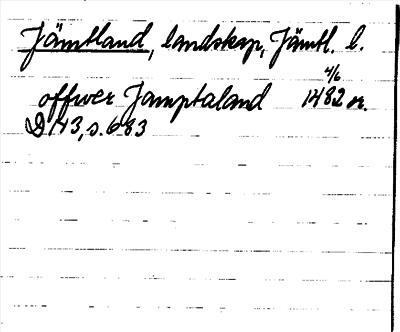 Jämtland, landskap, Jämtl. l.
offwer Jamptaland 4/6 1482 or.
D 143, s. 683